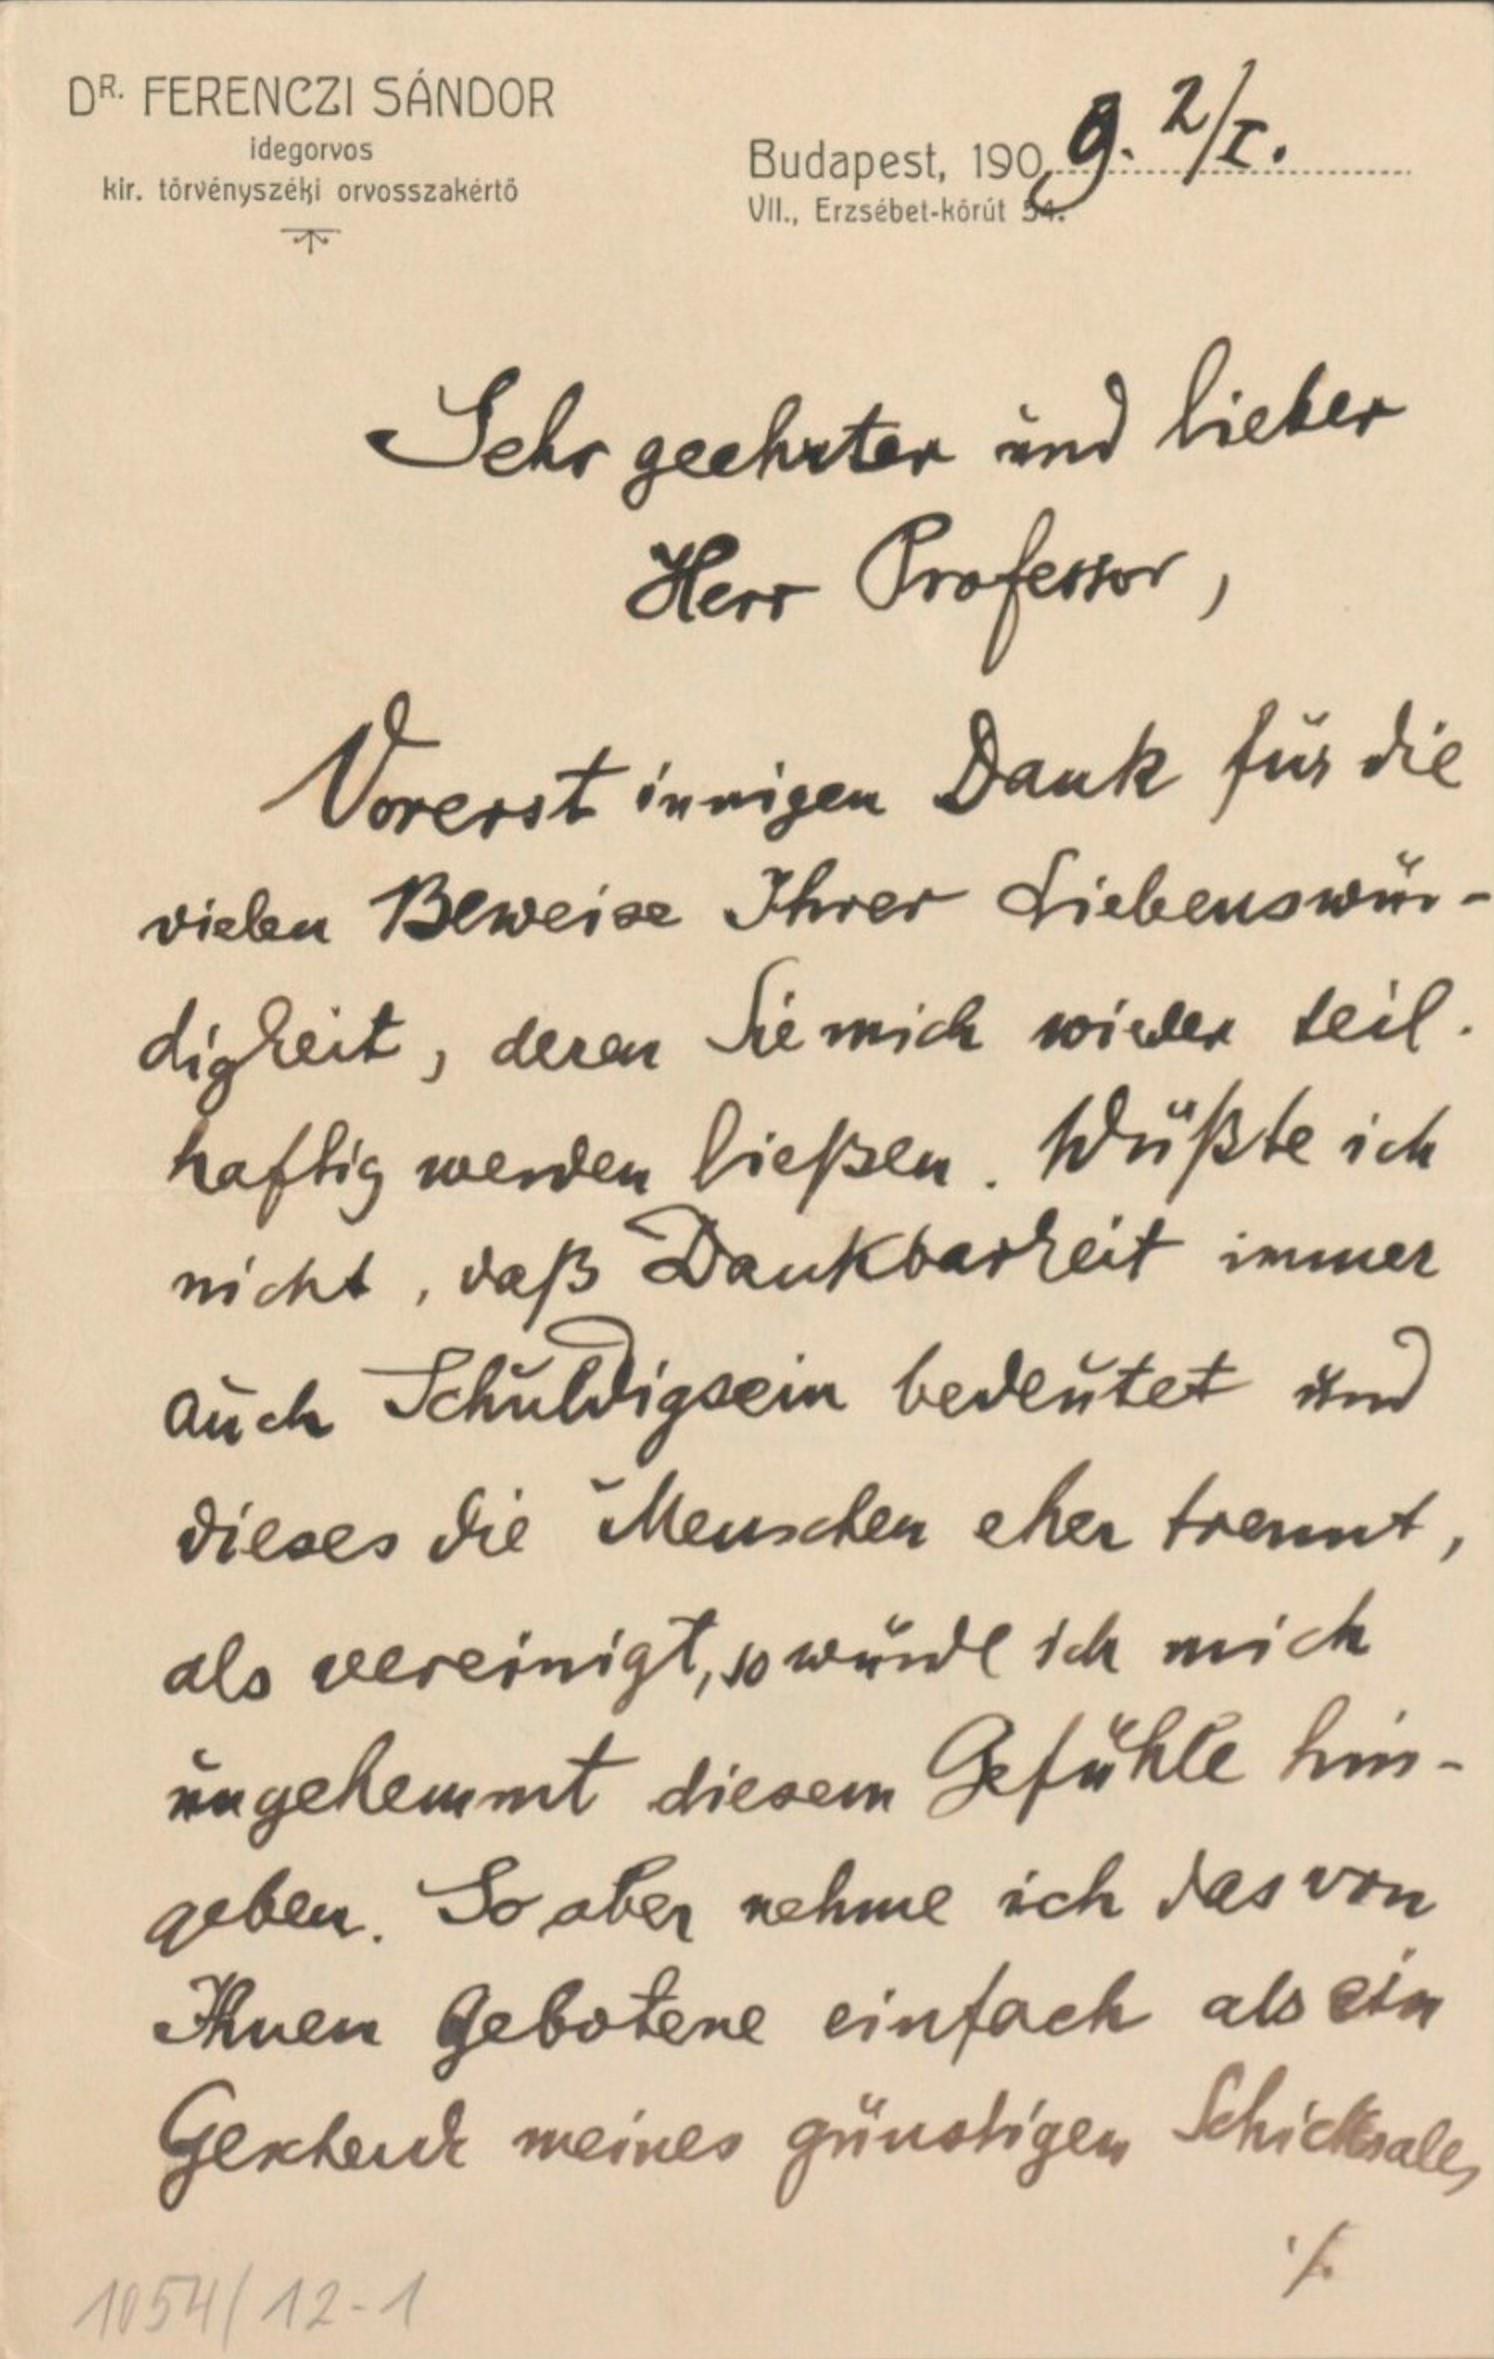 DR. FERENCZI SÁNDOR
idegorvos
kir. törvényszéki orvosszakértő
Budapest, 1909. 2/I.
VII., Erzsébet-körút 54.
Sehr geehrter und lieber
Herr Professor,
Vorerst innigen Dank für die
vielen Beweise Ihrer Liebenswür-
digkeit, deren Sie mich wieder teil-
haftig werden ließen. Wüßte ich
nicht, daß Dankbarkeit immer
auch Schuldigsein bedeutet und
dieses die Menschen eher trennt,
als vereinigt, so würde ich mich
ungehemmt diesem Gefühle hin-
geben. So aber nehme ich das von
Ihnen Gebotene einfach als ein
Geschenk meines günstigen Schicksales,
./.
1054/12-1